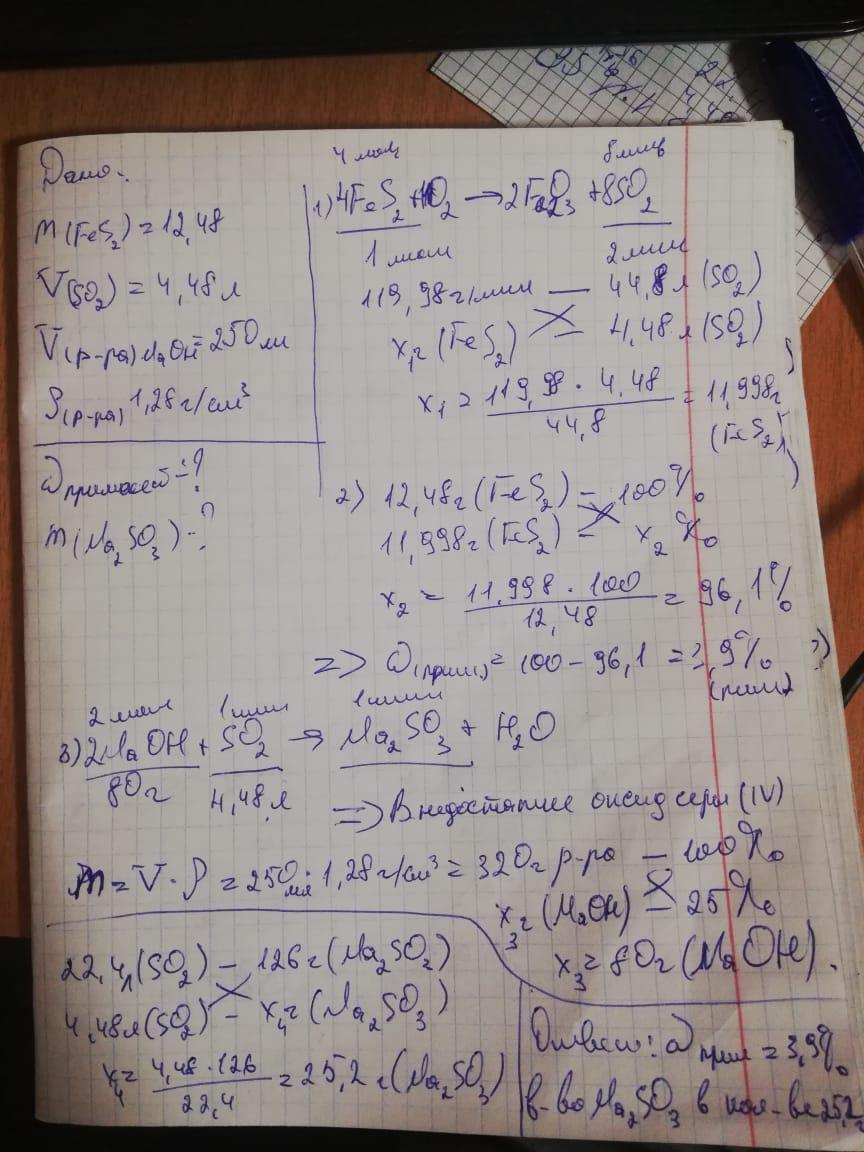 Дано:
m(FeS₂) = 12,48
V(SO₂) = 4,48 л
V(р-ра) NaOH = 250 мл
ρ(р-ра) 1,28 г/см³
ω примесей - ?
m(Na₂SO₃) - ?
4 моль 8 моль
1) 4FeS₂ + 11O₂ → 2Fe₂O₃ + 8SO₂
1 моль 2 моль
119,98 г/моль — 44,8 л (SO₂)
x₁ г (FeS₂) — 4,48 л (SO₂)
x₁ = 119,98 · 4,48 / 44,8 = 11,998 г (FeS₂)
2) 12,48 г (FeS₂) – 100%
11,998 г (FeS₂) – x₂ %
x₂ = 11,998 · 100 / 12,48 = 96,1%
=> ω(прим.) = 100 – 96,1 = 3,9%
(прим.)
2 моль 1 моль 1 моль
3) 2NaOH + SO₂ → Na₂SO₃ + H₂O
80 г 4,48 л
=> В недостатке оксид серы (IV)
m = V · ρ = 250 мл · 1,28 г/см³ = 320 г р-ра — 100%
x₃ г (NaOH) – 25%
x₃ = 80 г (NaOH).
22,4 л (SO₂) – 126 г (Na₂SO₂)
4,48 л (SO₂) – x₄ г (Na₂SO₃)
x₄ = 4,48 · 126 / 22,4 = 25,2 г (Na₂SO₃)
Ответ: ω прим = 3,9%
в-во Na₂SO₃ в кол-ве 25,2 г